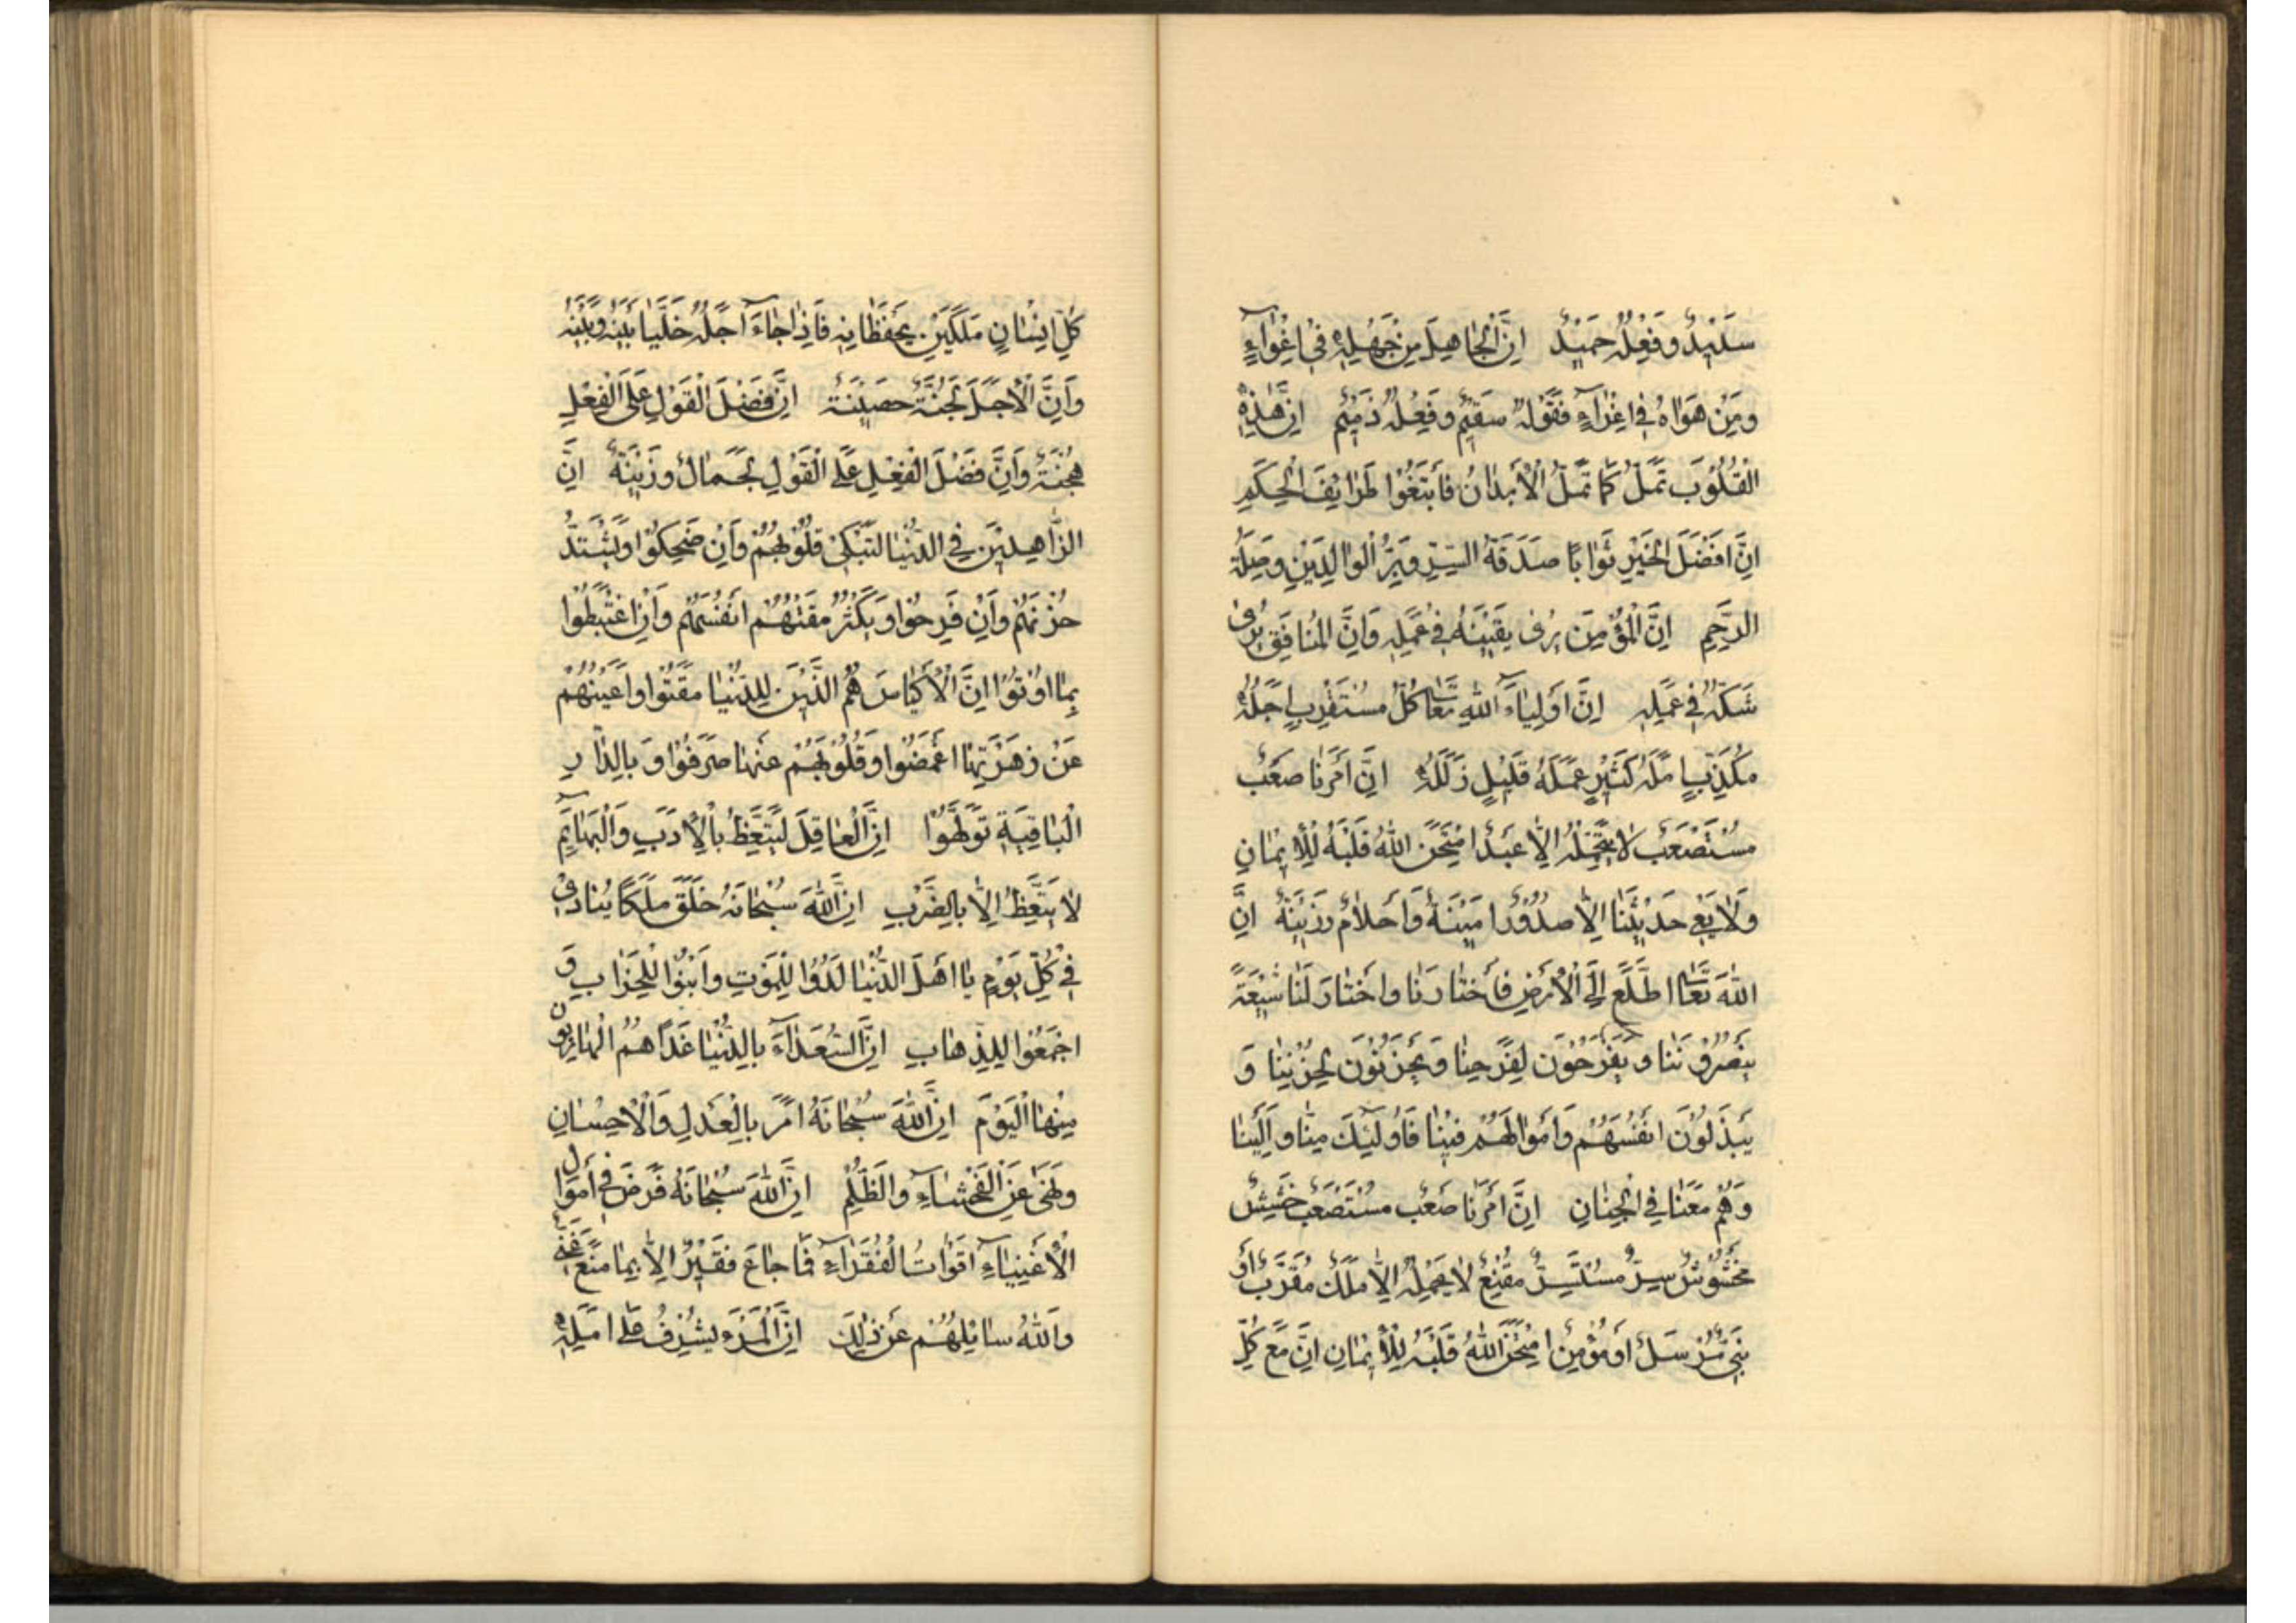 سَدِيدٌ وَفِعْلُهُ حَمِيدٌ اِنَّ الْجَاهِلَ مِنْ جَهْلِهِ فِي اِغْوَاءٍ
وَمِنْ هَوَاهُ فِي اِغْرَاءٍ فَقَوْلُهُ سَقِيمٌ وَفِعْلُهُ ذَمِيمٌ اِنَّ هٰذِهِ
الْقُلُوبَ تَمَلُّ كَمَا تَمَلُّ الْأَبْدَانُ فَابْتَغُوا لَهَا طَرَايِفَ الْحِكَمِ
اِنَّ اَفْضَلَ الْخَيْرِ ثَوَابًا صَدَقَةُ السِّرِّ وَبِرُّ الْوَالِدَيْنِ وَصِلَةُ
الرَّحِمِ اِنَّ الْمُؤْمِنَ يُرٰى يَقِينُهُ فِي عَمَلِهِ وَاِنَّ الْمُنَافِقَ يُرٰى
شَكُّهُ فِي عَمَلِهِ اِنَّ اَوْلِيَاءَ اللهِ تَعَالٰى كُلُّ مُسْتَقْرِبٍ اَجَلَهُ
مُكَذِّبٍ اَمَلَهُ كَثِيرٍ عَمَلُهُ قَلِيلٍ زَلَلُهُ اِنَّ اَمْرَنَا صَعْبٌ
مُسْتَصْعَبٌ لَا يَحْتَمِلُهُ اِلَّا عَبْدٌ امْتَحَنَ اللهُ قَلْبَهُ لِلْاِيمَانِ
وَلَا يَعِي حَدِيثَنَا اِلَّا صُدُورٌ اَمِينَةٌ وَاَحْلَامٌ رَزِينَةٌ اِنَّ
اللهَ تَعَالٰى اطَّلَعَ اِلَى الْأَرْضِ فَاخْتَارَنَا وَاخْتَارَ لَنَا شِيعَةً
يَنْصُرُونَنَا وَيَفْرَحُونَ لِفَرَحِنَا وَيَحْزَنُونَ لِحُزْنِنَا وَ
يَبْذُلُونَ اَنْفُسَهُمْ وَاَمْوَالَهُمْ فِينَا فَأُولٰئِكَ مِنَّا وَاِلَيْنَا
وَهُمْ مَعَنَا فِي الْجِنَانِ اِنَّ اَمْرَنَا صَعْبٌ مُسْتَصْعَبٌ خَشِنٌ
مَخْشُوشٌ سِرٌّ مُسْتَسِرٌّ مُقَنَّعٌ لَا يَحْمِلُهُ اِلَّا مَلَكٌ مُقَرَّبٌ اَوْ
نَبِيٌّ مُرْسَلٌ اَوْ مُؤْمِنٌ امْتَحَنَ اللهُ قَلْبَهُ لِلْاِيمَانِ اِنَّ مَعَ كُلِّ
كُلِّ اِنْسَانٍ مَلَكَيْنِ يَحْفَظَانِهِ فَاِذَا جَاءَ اَجَلُهُ خَلَّيَا بَيْنَهُ وَبَيْنَهُ
وَاِنَّ الْأَجَلَ لَجُنَّةٌ حَصِينَةٌ اِنَّ فَضْلَ الْقَوْلِ عَلَى الْفِعْلِ
هُجْنَةٌ وَاِنَّ فَضْلَ الْفِعْلِ عَلَى الْقَوْلِ لَجَمَالٌ وَزِينَةٌ اِنَّ
الزَّاهِدِينَ فِي الدُّنْيَا لَتَبْكِي قُلُوبُهُمْ وَاِنْ ضَحِكُوا وَيَشْتَدُّ
حُزْنُهُمْ وَاِنْ فَرِحُوا وَيَكْثُرُ مَقْتُهُمْ اَنْفُسَهُمْ وَاِنِ اغْتُبِطُوا
بِمَا اُوتُوا اِنَّ الْأَكْيَاسَ هُمُ الَّذِينَ لِلدُّنْيَا مَقَتُوا وَاَعْيُنَهُمْ
عَنْ زَهْرَتِهَا اَغْمَضُوا وَقُلُوبَهُمْ عَنْهَا صَرَفُوا وَبِالدَّارِ
الْبَاقِيَةِ تَوَلَّهُوا اِنَّ الْعَاقِلَ لَيَتَّعِظُ بِالْأَدَبِ وَالْبَهَايِمُ
لَا يَتَّعِظُ اِلَّا بِالضَّرْبِ اِنَّ اللهَ سُبْحَانَهُ خَلَقَ مَلَكًا يُنَادِي
فِي كُلِّ يَوْمٍ يَا اَهْلَ الدُّنْيَا لِدُوا لِلْمَوْتِ وَابْنُوا لِلْخَرَابِ وَ
اجْمَعُوا لِلذَّهَابِ اِنَّ السُّعَدَاءَ بِالدُّنْيَا غَدًا هُمُ الْهَارِبُونَ
مِنْهَا الْيَوْمَ اِنَّ اللهَ سُبْحَانَهُ اَمَرَ بِالْعَدْلِ وَالْاِحْسَانِ
وَنَهَى عَنِ الْفَحْشَاءِ وَالظُّلْمِ اِنَّ اللهَ سُبْحَانَهُ فَرَضَ فِي اَمْوَالِ
الْأَغْنِيَاءِ اَقْوَاتَ الْفُقَرَاءِ فَمَا جَاعَ فَقِيرٌ اِلَّا بِمَا مَنَعَ غَنِيٌّ
وَاللهُ سَائِلُهُمْ عَنْ ذٰلِكَ اِنَّ الْمَرْءَ يُشْرِفُ عَلَى اَمَلِهِ